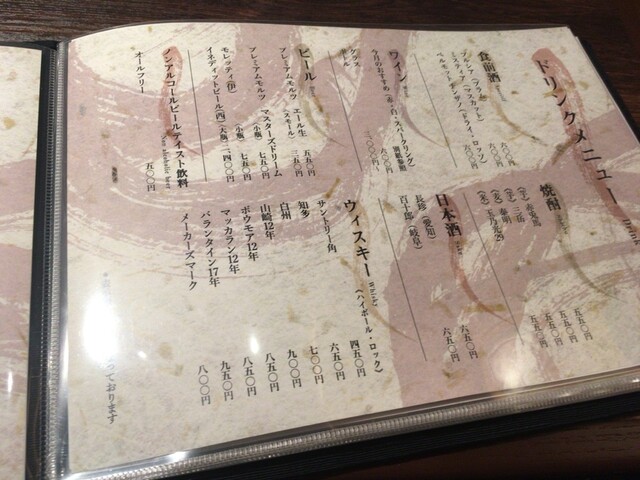 ドリンクメニュー
食前酒
プルシア（プラム） 六〇〇円
ミスティア（マスカット） 六〇〇円
ワイン
今月のおすすめ（赤・白・スパークリング） 別紙参照
グラス 八〇〇円
ボトル 三〇〇〇円
ビール
プレミアムモルツ エール生 五五〇円
（スモール） 三五〇円
プレミアムモルツ マスターズドリーム
小瓶 七五〇円
モレッティ（伊） 小瓶 七五〇円
イネディットビール（西）（大瓶）二、四〇〇円
ノンアルコールビールテイスト飲料
Non alcoholic beer
オールフリー 五〇〇円
焼酎
（芋）赤兎馬 五五〇円
（芋）三岳 五五〇円
日本酒
Sake
長珍（愛知） 六五〇円
百十郎（岐阜） 六五〇円
ウィスキー Whisky （ハイボール・ロック）
サントリー角 四五〇円
知多 六五〇円
白州 七〇〇円
山崎12年 九〇〇円
ボウモア12年 八五〇円
マッカラン12年 八五〇円
バランタイン17年 九五〇円
メーカーズマーク 八〇〇円
っております